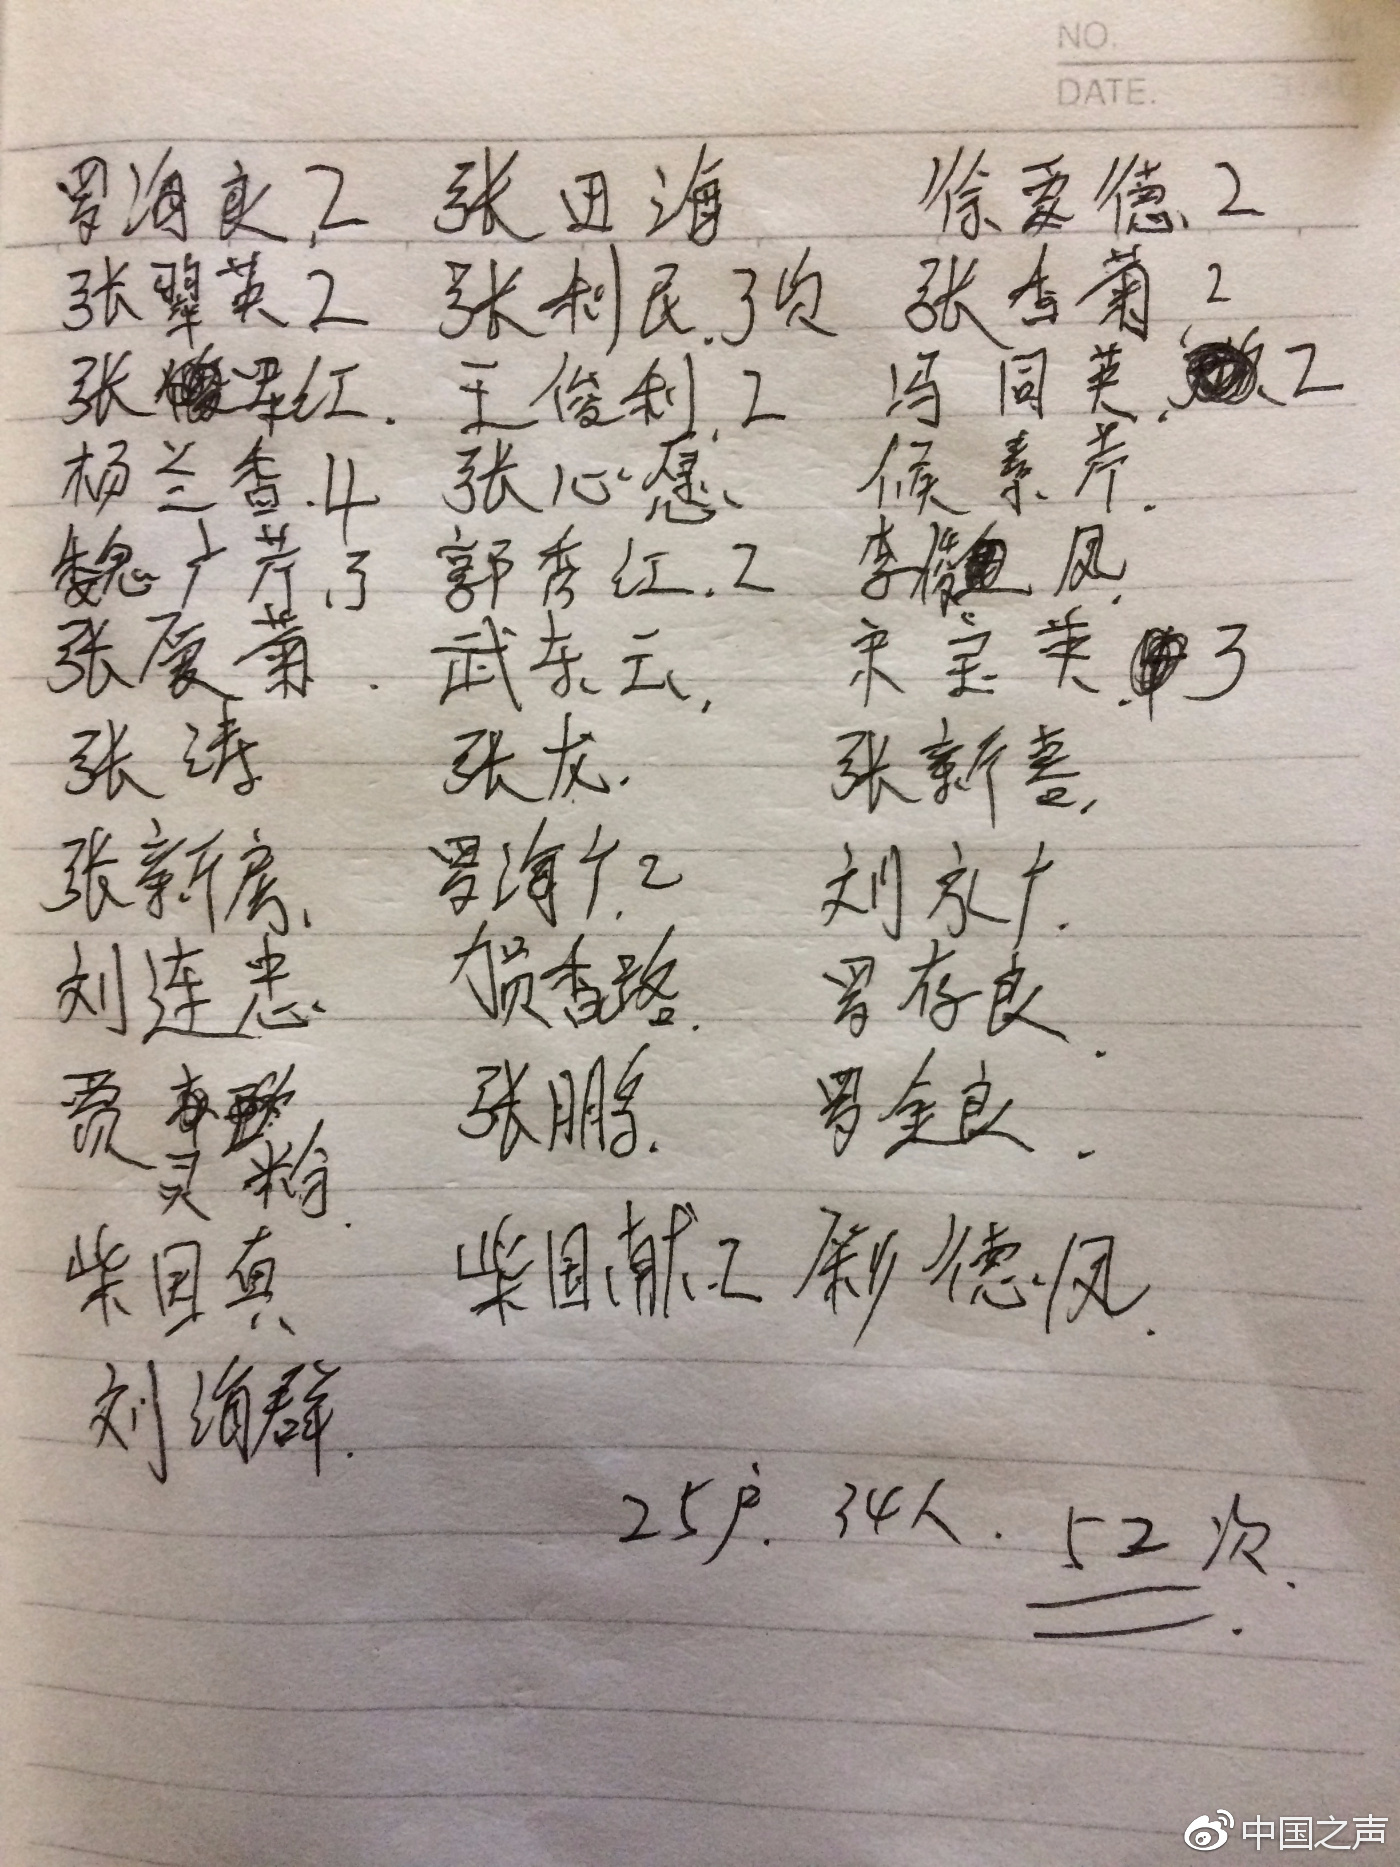 NO.
DATE.
罗海良.2 张田海 徐爱德.2
张翠英.2 张利民.3次 张杏菊.2
张翠红. 王俊利.2 冯同英.2
杨兰香.4 张心愿. 候素芹.
魏广芹.3 郭秀红.2 李俊凤.
张厦菊. 武东云. 宋宝英.3
张涛 张龙. 张新喜.
张新房. 罗海广.2 刘永广.
刘连忠. 贺香路. 罗存良.
贾 张鹏. 罗金良.
灵粉.
柴国真 柴国献.2 德凤.
刘海群.
25户. 34人. 52次.
中国之声